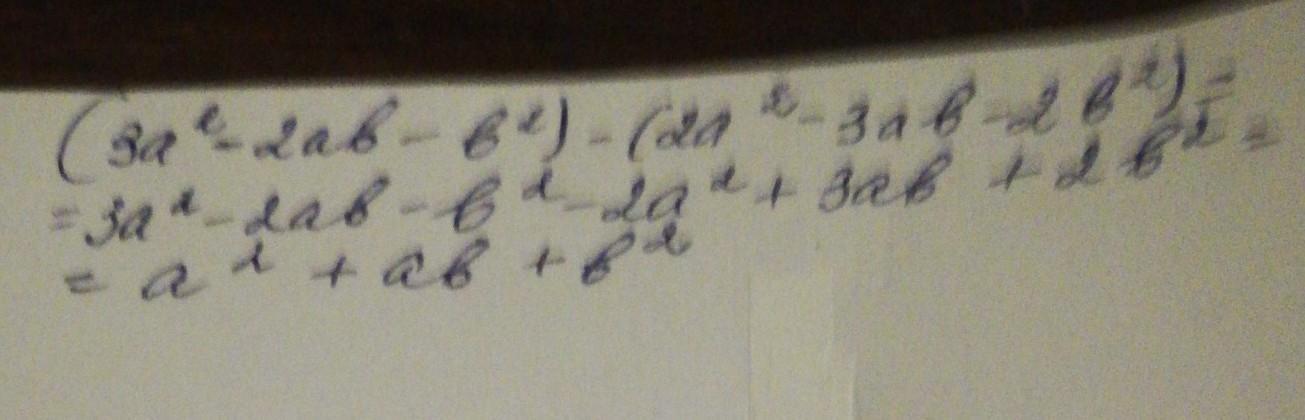 (3a² - 2ab - b²) - (2a² - 3ab - 2b²) =
= 3a² - 2ab - b² - 2a² + 3ab + 2b² =
= a² + ab + b²